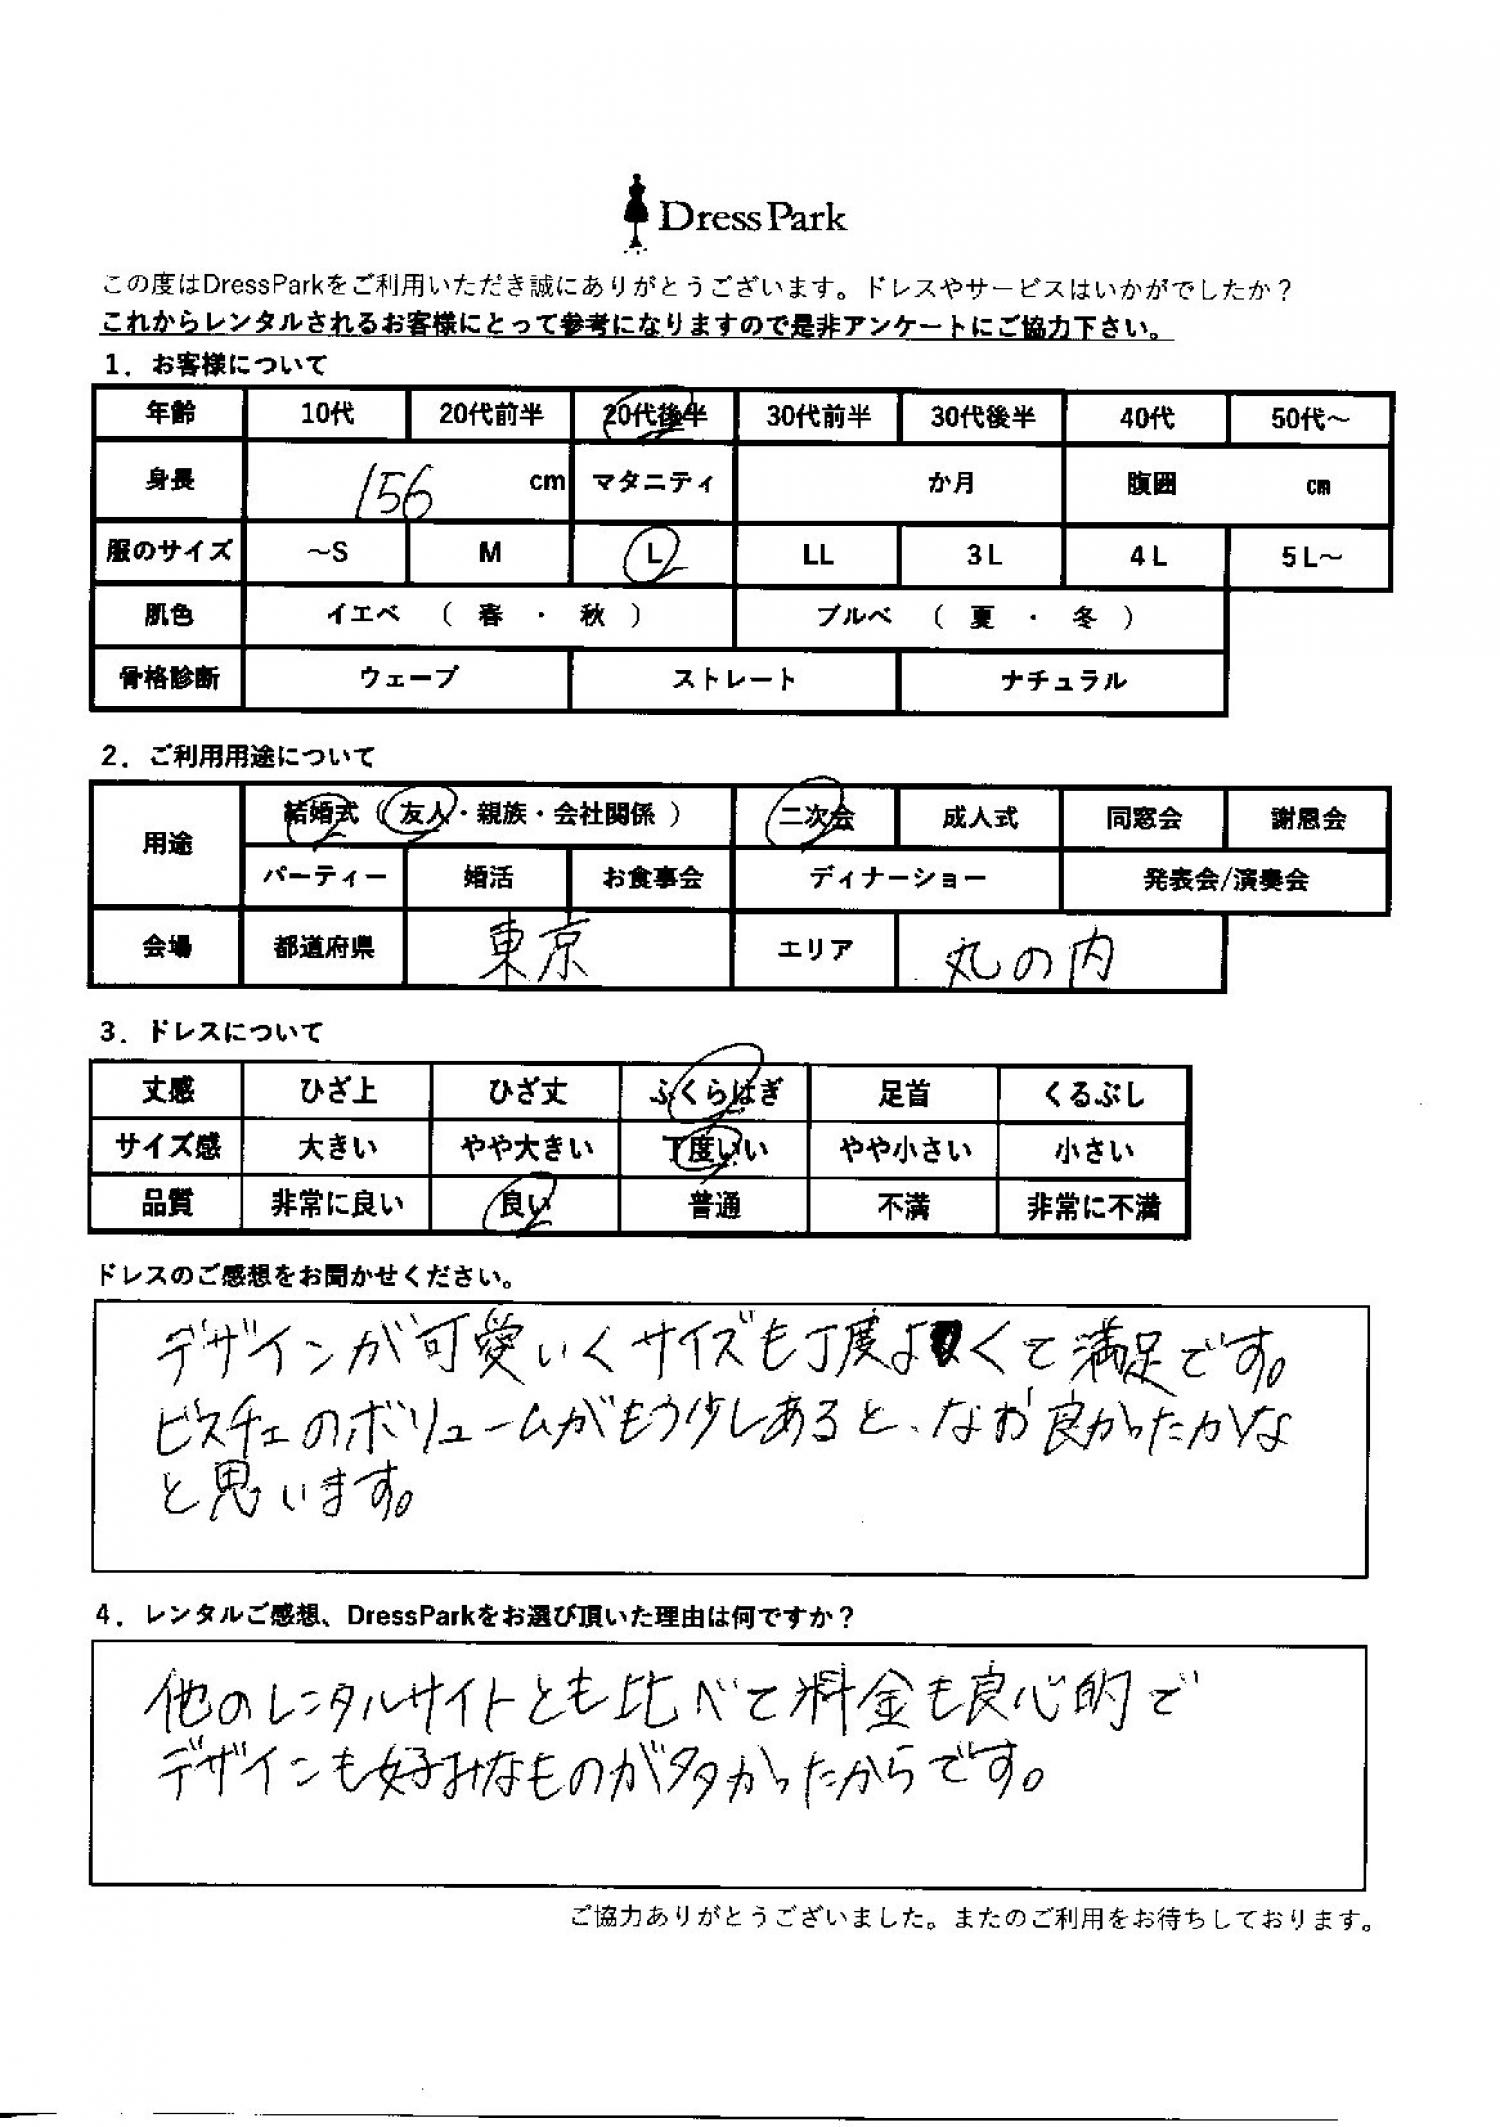 Dress Park
この度はDressParkをご利用いただき誠にありがとうございます。ドレスやサービスはいかがでしたか？
これからレンタルされるお客様にとって参考になりますので是非アンケートにご協力下さい。
1．お客様について
年齢 10代 20代前半 20代後半 30代前半 30代後半 40代 50代～
身長 156 cm マタニティ か月 腹囲 cm
服のサイズ ～S M L LL 3L 4L 5L～
肌色 イエベ （ 春 ・ 秋 ） ブルベ （ 夏 ・ 冬 ）
骨格診断 ウェーブ ストレート ナチュラル
2．ご利用用途について
用途 結婚式（ 友人・親族・会社関係 ） 二次会 成人式 同窓会 謝恩会
パーティー 婚活 お食事会 ディナーショー 発表会/演奏会
会場 都道府県 東京 エリア 丸の内
3．ドレスについて
丈感 ひざ上 ひざ丈 ふくらはぎ 足首 くるぶし
サイズ感 大きい やや大きい 丁度いい やや小さい 小さい
品質 非常に良い 良い 普通 不満 非常に不満
ドレスのご感想をお聞かせください。
デザインが可愛いくサイズも丁度よくて満足です。
ビスチェのボリュームがもう少しあると、なお良かったかな
と思います。
4．レンタルご感想、DressParkをお選び頂いた理由は何ですか？
他のレンタルサイトとも比べて料金も良心的で
デザインも好みなものが多かったからです。
ご協力ありがとうございました。またのご利用をお待ちしております。